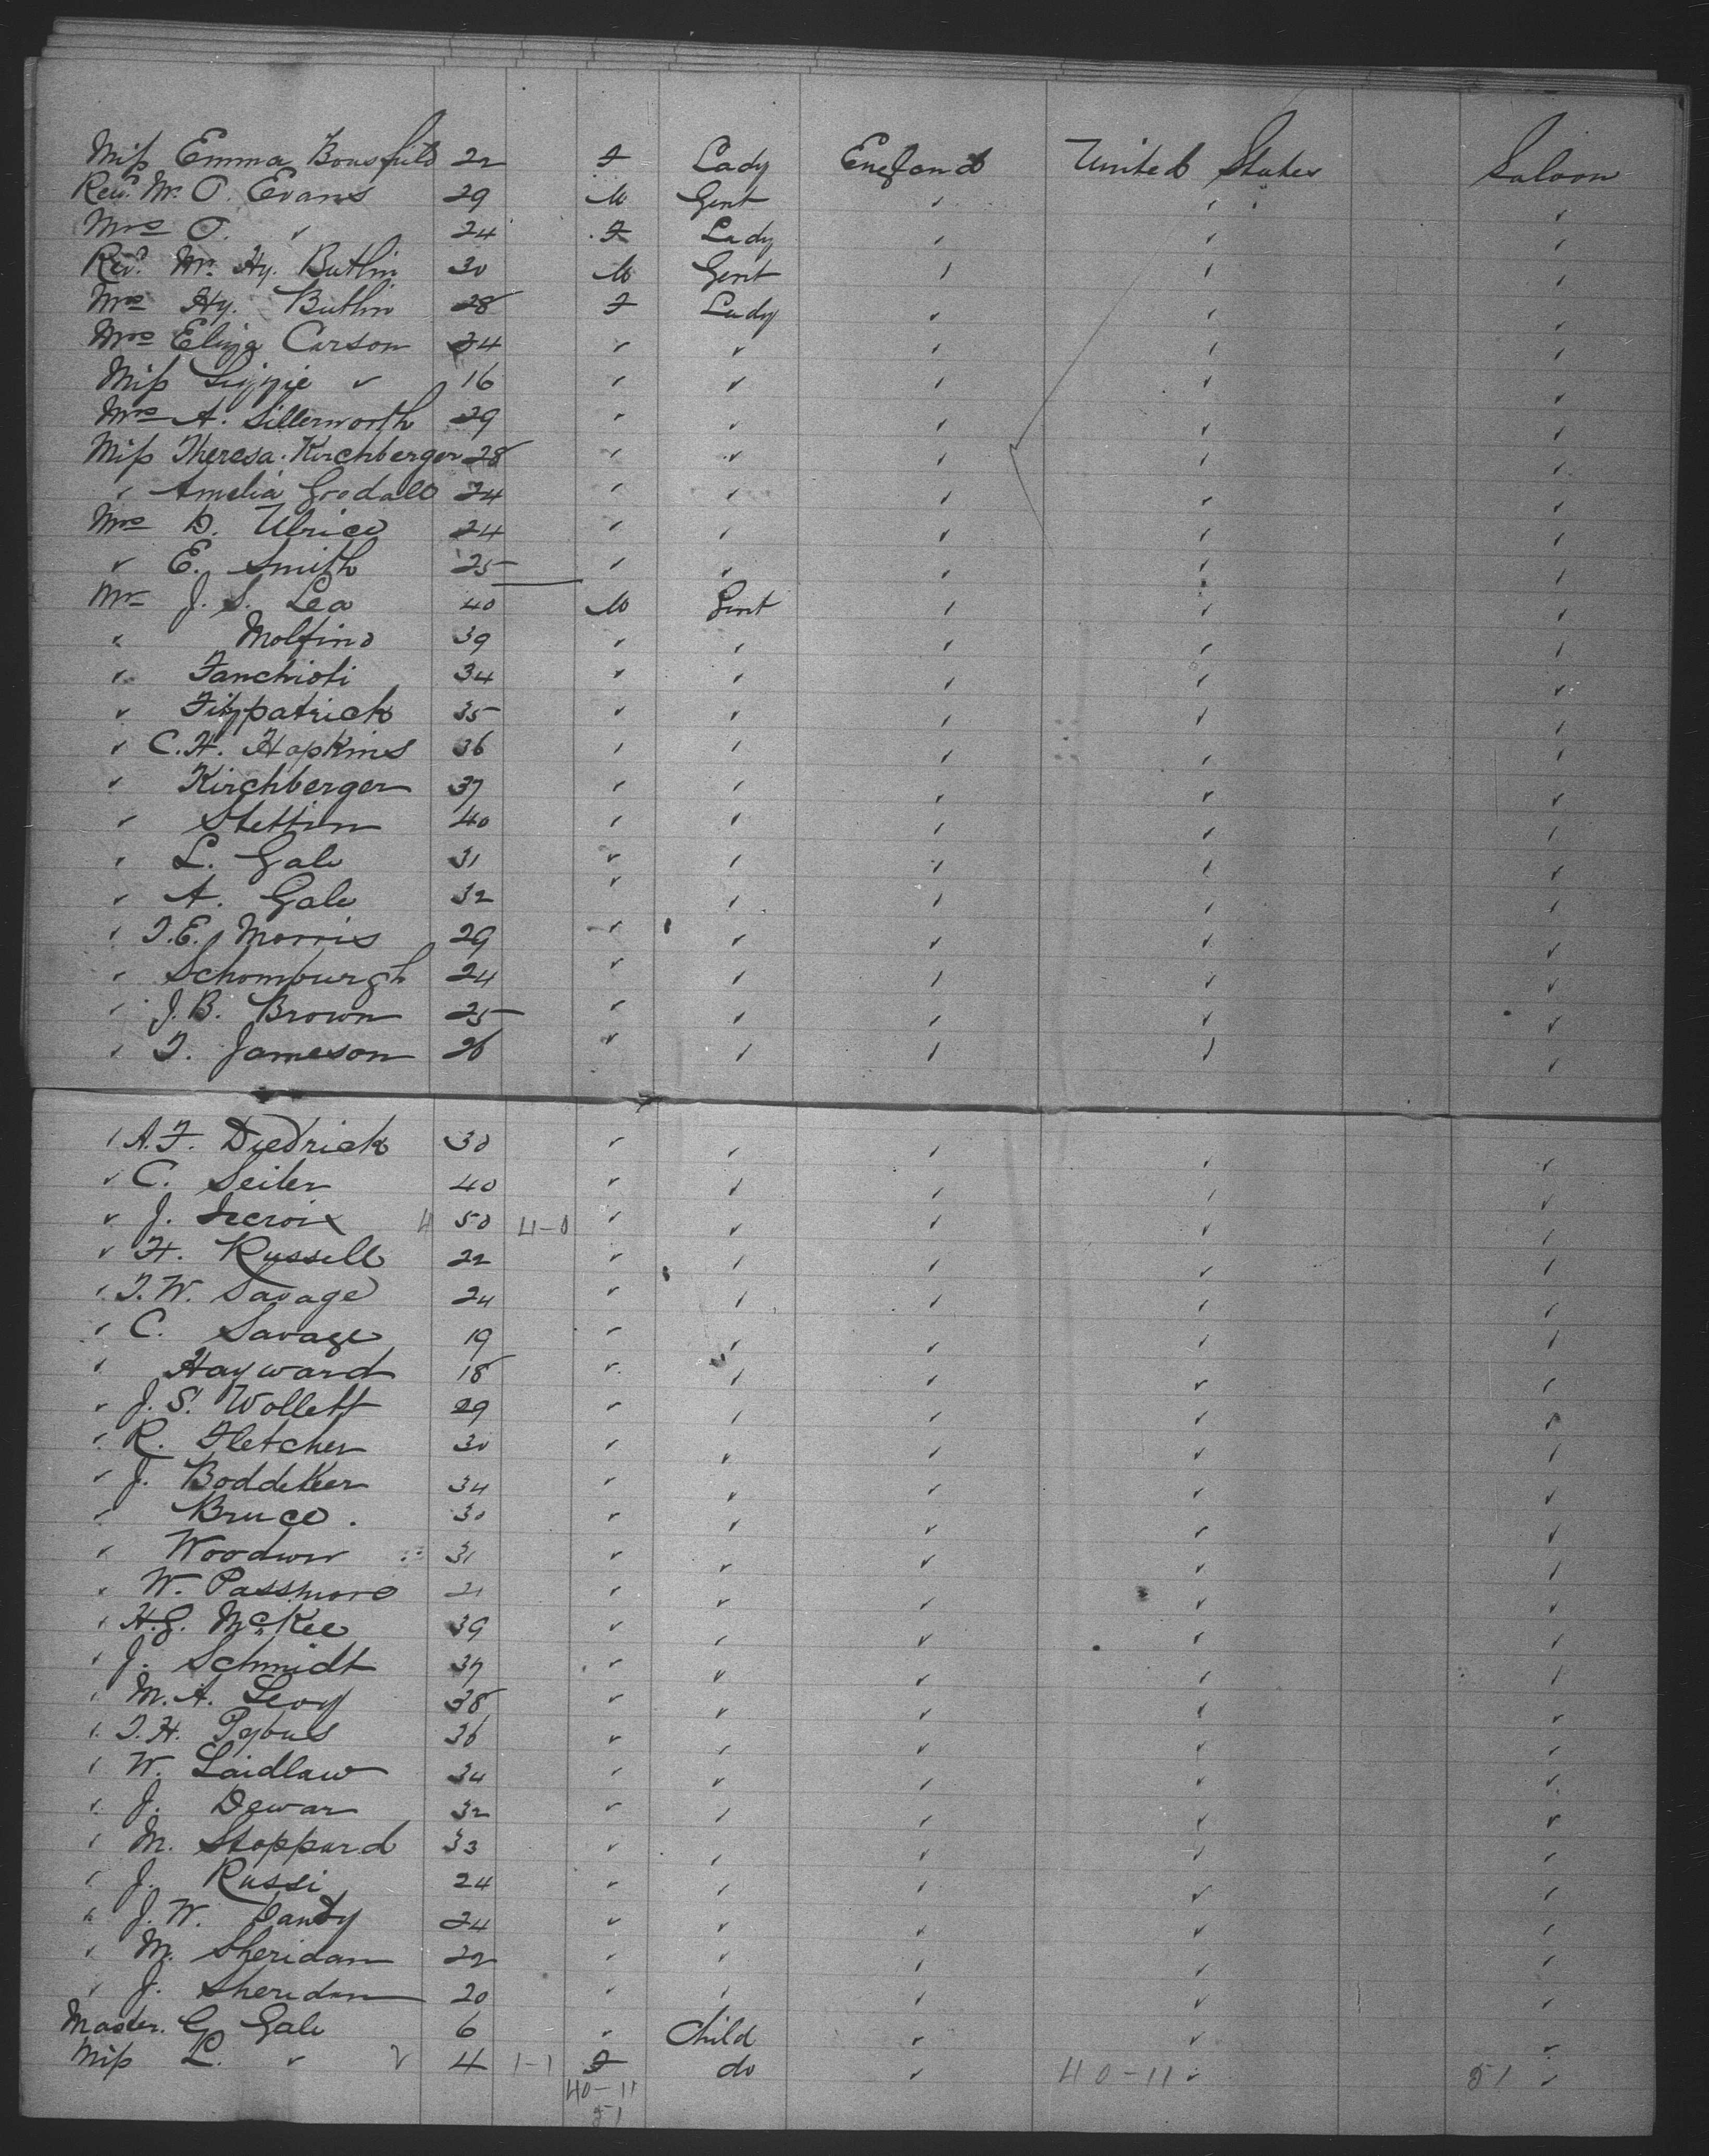 Miss Emma Bousfield 22 F Lady England United States Saloon
Revd. Mr. O. Evans 29 M Gent " " "
Mrs O. " 24 F Lady " " "
Revd. Mr. Hy. Butlin 30 M Gent " " "
Mrs Hy. Butlin 28 F Lady " " "
Mrs Eliza Carson 34 " " " " "
Miss Lizzie " 16 " " " " "
Mrs A. Sillerworth 29 " " " " "
Miss Theresa Kirchberger 28 " " " " "
" Amelia Goodall 24 " " " " "
Mrs D. Ulrico 24 " " " " "
" E. Smith 25 " " " " "
Mr J. S. Lea 40 M Gent " " "
" Molfino 39 " " " " "
" Fanchioti 34 " " " " "
" Fitzpatrick 35 " " " " "
" C.H. Hopkins 36 " " " " "
" Kirchberger 37 " " " " "
" Stettin 40 " " " " "
" L. Gale 31 " " " " "
" A. Gale 32 " " " " "
" T.E. Morris 29 " " " " "
" Schomburgh 24 " " " " "
" J.B. Brown 25 " " " " "
" T. Jameson 26 " " " " "
" A.F. Diedrick 30 " " " " "
" C. Seiler 40 " " " " "
" J. Lecroix 4 50 4-0 " " " " "
" H. Russell 22 " " " " "
" T.W. Savage 24 " " " " "
" C. Savage 19 " " " " "
" Hayward 18 " " " " "
" J.S. Wollett 29 " " " " "
" R. Fletcher 30 " " " " "
" J. Boddeker 34 " " " " "
" Bruce. 30 " " " " "
" 31 " " " " "
" W. Passmore 21 " " " " "
" H.G. McKee 39 " " " " "
" J. Schmidt 37 " " " " "
" M.A. Levy 38 " " " " "
" T.H. Pybus 36 " " " " "
" W. Laidlaw 34 " " " " "
" J. Dewar 32 " " " " "
" M. Stoppard 33 " " " " "
" J. Russi 24 " " " " "
" J.W. Dandy 24 " " " " "
" M. Sheridan 22 " " " " "
" J. Sheridan 20 " " " " "
Master. G Gale 6 " Child " " "
Miss L. " 4 1-1 F do " 40-11 " 51 "
40-11
51